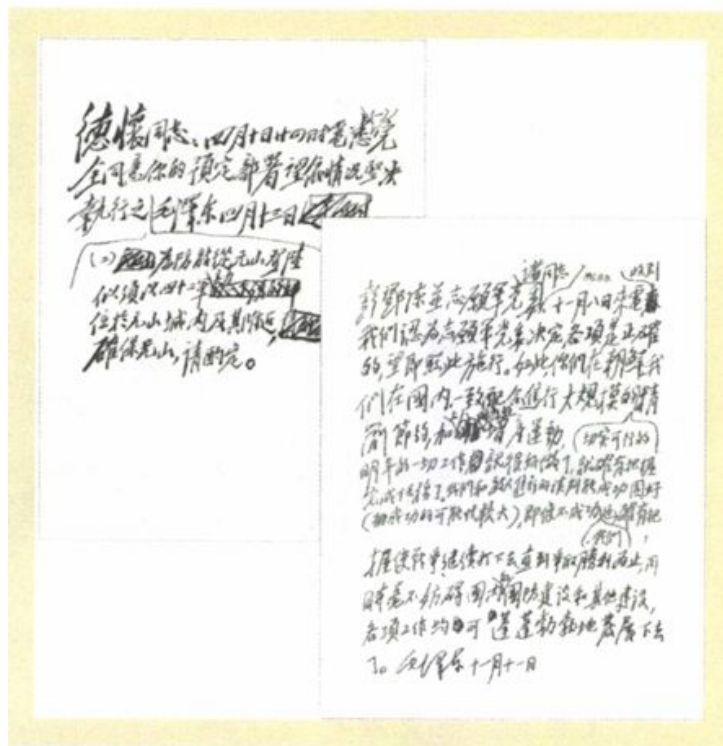 德懷同志：四月十日廿四時電悉完
全同意你的預定部署望依情況堅决
執行之 毛澤東四月十二日
(二) 爲防敵從元山登陸
似須以四十二軍
位於元山城内及其附近
確保元山，請酌定。
諸同志
彭鄧陳並志願軍黨委 十一月八日來電收到
我們認爲志願軍黨委決定各項是正確
的，望即照此施行。如此，你們在朝鮮我
們在國内一致配合進行大規模的精
簡節約和增產運動，
切實可行的
明年的一切工作就很好做了，就確有把握
完成任務了。我們和敵人進行的談判能成功固好
(和成功的可能比較大)，即使不成功也確有把
我們
握使戰爭繼續打下去直到爭取勝利爲止，同
時毫不妨碍國内國防建設和其他建設，
各項工作均可蓬蓬勃勃地發展下去
了。 毛澤東十一月十一日